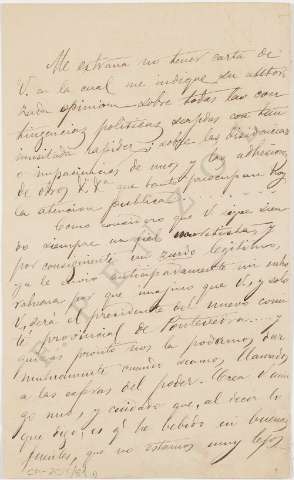 Me extraña no tener carta de
V. en la cual me indique su autori
zada opinion sobre todas las con
tingencias politicas surgidas con tan
inusitada rapidez y sobre las disidencias
o impaciencias de unos y las adhesiones
de otros &.&ª que tanto preocupan hoy
la atencion publica!
Como considero que V sigue sien
do siempre un fiel y
por consiguiente un zurdo legitimo,
ya le envio anticipadamente mi enho
rabuena por que una que V, y solo
V, será el presidente del nuevo comi
té provincial de Pontevedra y
quizas pronto nos la podamos dar
mutuamente cuando seamos llamados
a las esferas del poder. Crea V ami
go mio, y cuidado que, al decir lo
que digo, es qe he bebido en buenas
fuentes, que no estamos muy lejos